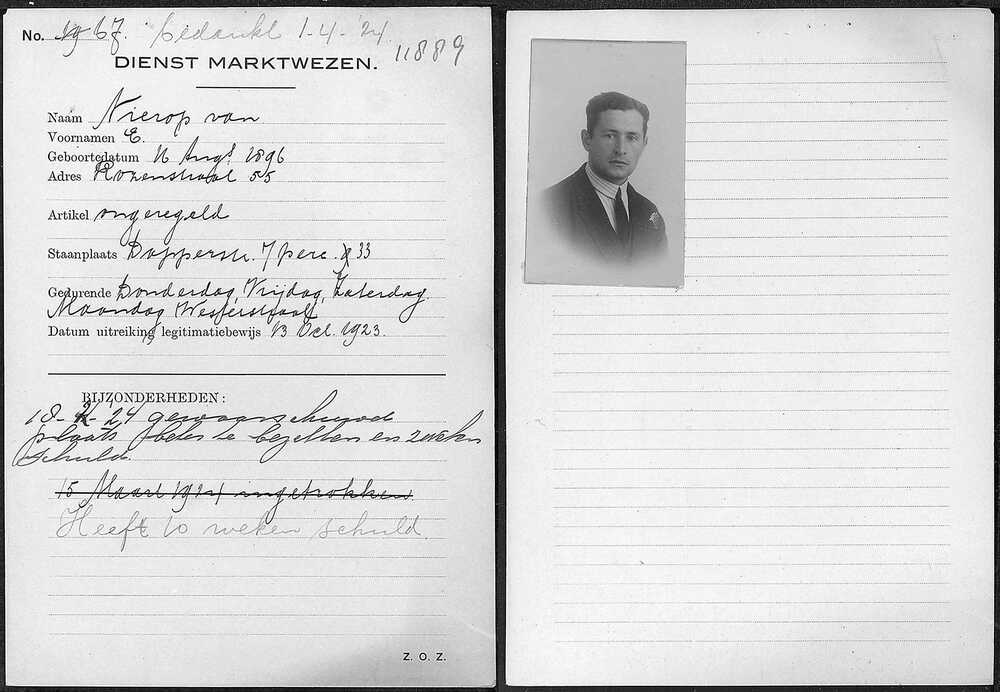 No. 1967. Bedankt 1-4-'24
11889
DIENST MARKTWEZEN.
Naam Nierop van
Voornamen E.
Geboortedatum 16 Augs. 1896
Adres Rozenstraat 55
Artikel ongeregeld
Staanplaats Dapperstr. 7 perc. 33
Gedurende Donderdag, Vrijdag, Zaterdag.
Maandag Westerstraat
Datum uitreiking legitimatiebewijs 13 Oct. 1923.
BIJZONDERHEDEN:
18- - '24 gewaarschuwd
plaats beter te bezetten en weken
schuld.
15 Maart 1924 ingetrokken
Heeft 10 weken schuld.
Z. O. Z.